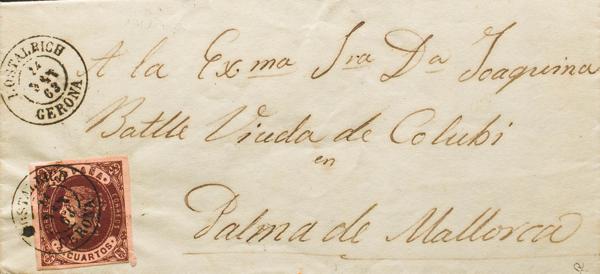 HOSTALRICH
14
SET
63
GERONA
A la Exma Sra Da Joaquina
Batlle Viuda de Colubi
en
Palma de Mallorca
HOSTALRICH
GERONA
ESPAÑA
CUARTOS